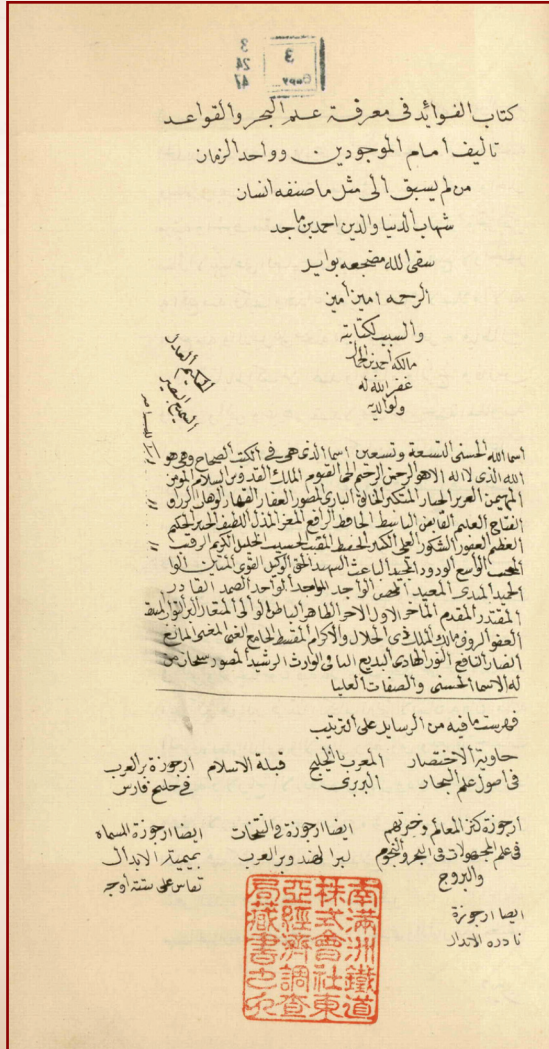 3
24
47
3
Copy
كتاب الفوائد فى معرفة علم البحر والقواعد
تاليف امام الموجودين وواحد الزمان
من لم يسبق الى مثل ما صنفه انسان
شهاب الدنيا والدين احمد بن ماجد
سقى الله مضجعه بوابل
الرحمه امين امين
والسبب لكتابته
مالكه احمد بن
غفر الله له
ولوالديه
الحكيم العدل
السميع البصير
اسما الله الحسنى التسعة وتسعين اسما الذى هى فى الكتب الصحاح وهى هو
الله الذى لا اله الا هو الرحمن الرحيم الحى القيوم الملك القدوس السلام المومن
المهيمن العزيز الجبار المتكبر الخالق البارى المصور الغفار القهار الوهاب الرزاق
الفتاح العليم القابض الباسط الحافظ الرافع المعز المذل اللطيف الخبير الحكيم
العظيم الغفور الشكور العلى الكبير الحفيظ المقيت الحسيب الجليل الكريم الرقيب
المجيب الواسع الودود المجيد الباعث الشهيد الحق الوكيل القوى المتين الوا
الحميد المبدى المعيد المحيى الواجد الماجد الواحد الصمد القادر
المقتدر المقدم الماخر الاول الاخر الظاهر الباطن الوالى المتعال البر التواب المنتقم
العفو الروف مالك الملك ذى الجلال والاكرام المقسط الجامع الغنى المغنى المانع
الضار النافع النور الهادى البديع الباقى الوارث الرشيد الصبور سبحان من
له الاسما الحسنى والصفات العليا
فهرست ما فيه من الرسايل على الترتيب
حاوية الاختصار المعرب بالخليج قبلة الاسلام ارجوزة بر العرب
فى اصول علم البحار البربرى فى خليج فارس
ارجوزة كنز المعالم وخبرتهم ايضا ارجوزة فى النتخات ايضا ارجوزة المسماه
فى علم المجهولات فى البحر والنجوم لبر الهند وبر العرب بميمية الابدال
والبروج تقاس على ستة اوجه
ايضا ارجوزة
نادرة الابدال
南滿洲鐵道
株式會社東
亞經濟調查
局藏書之印